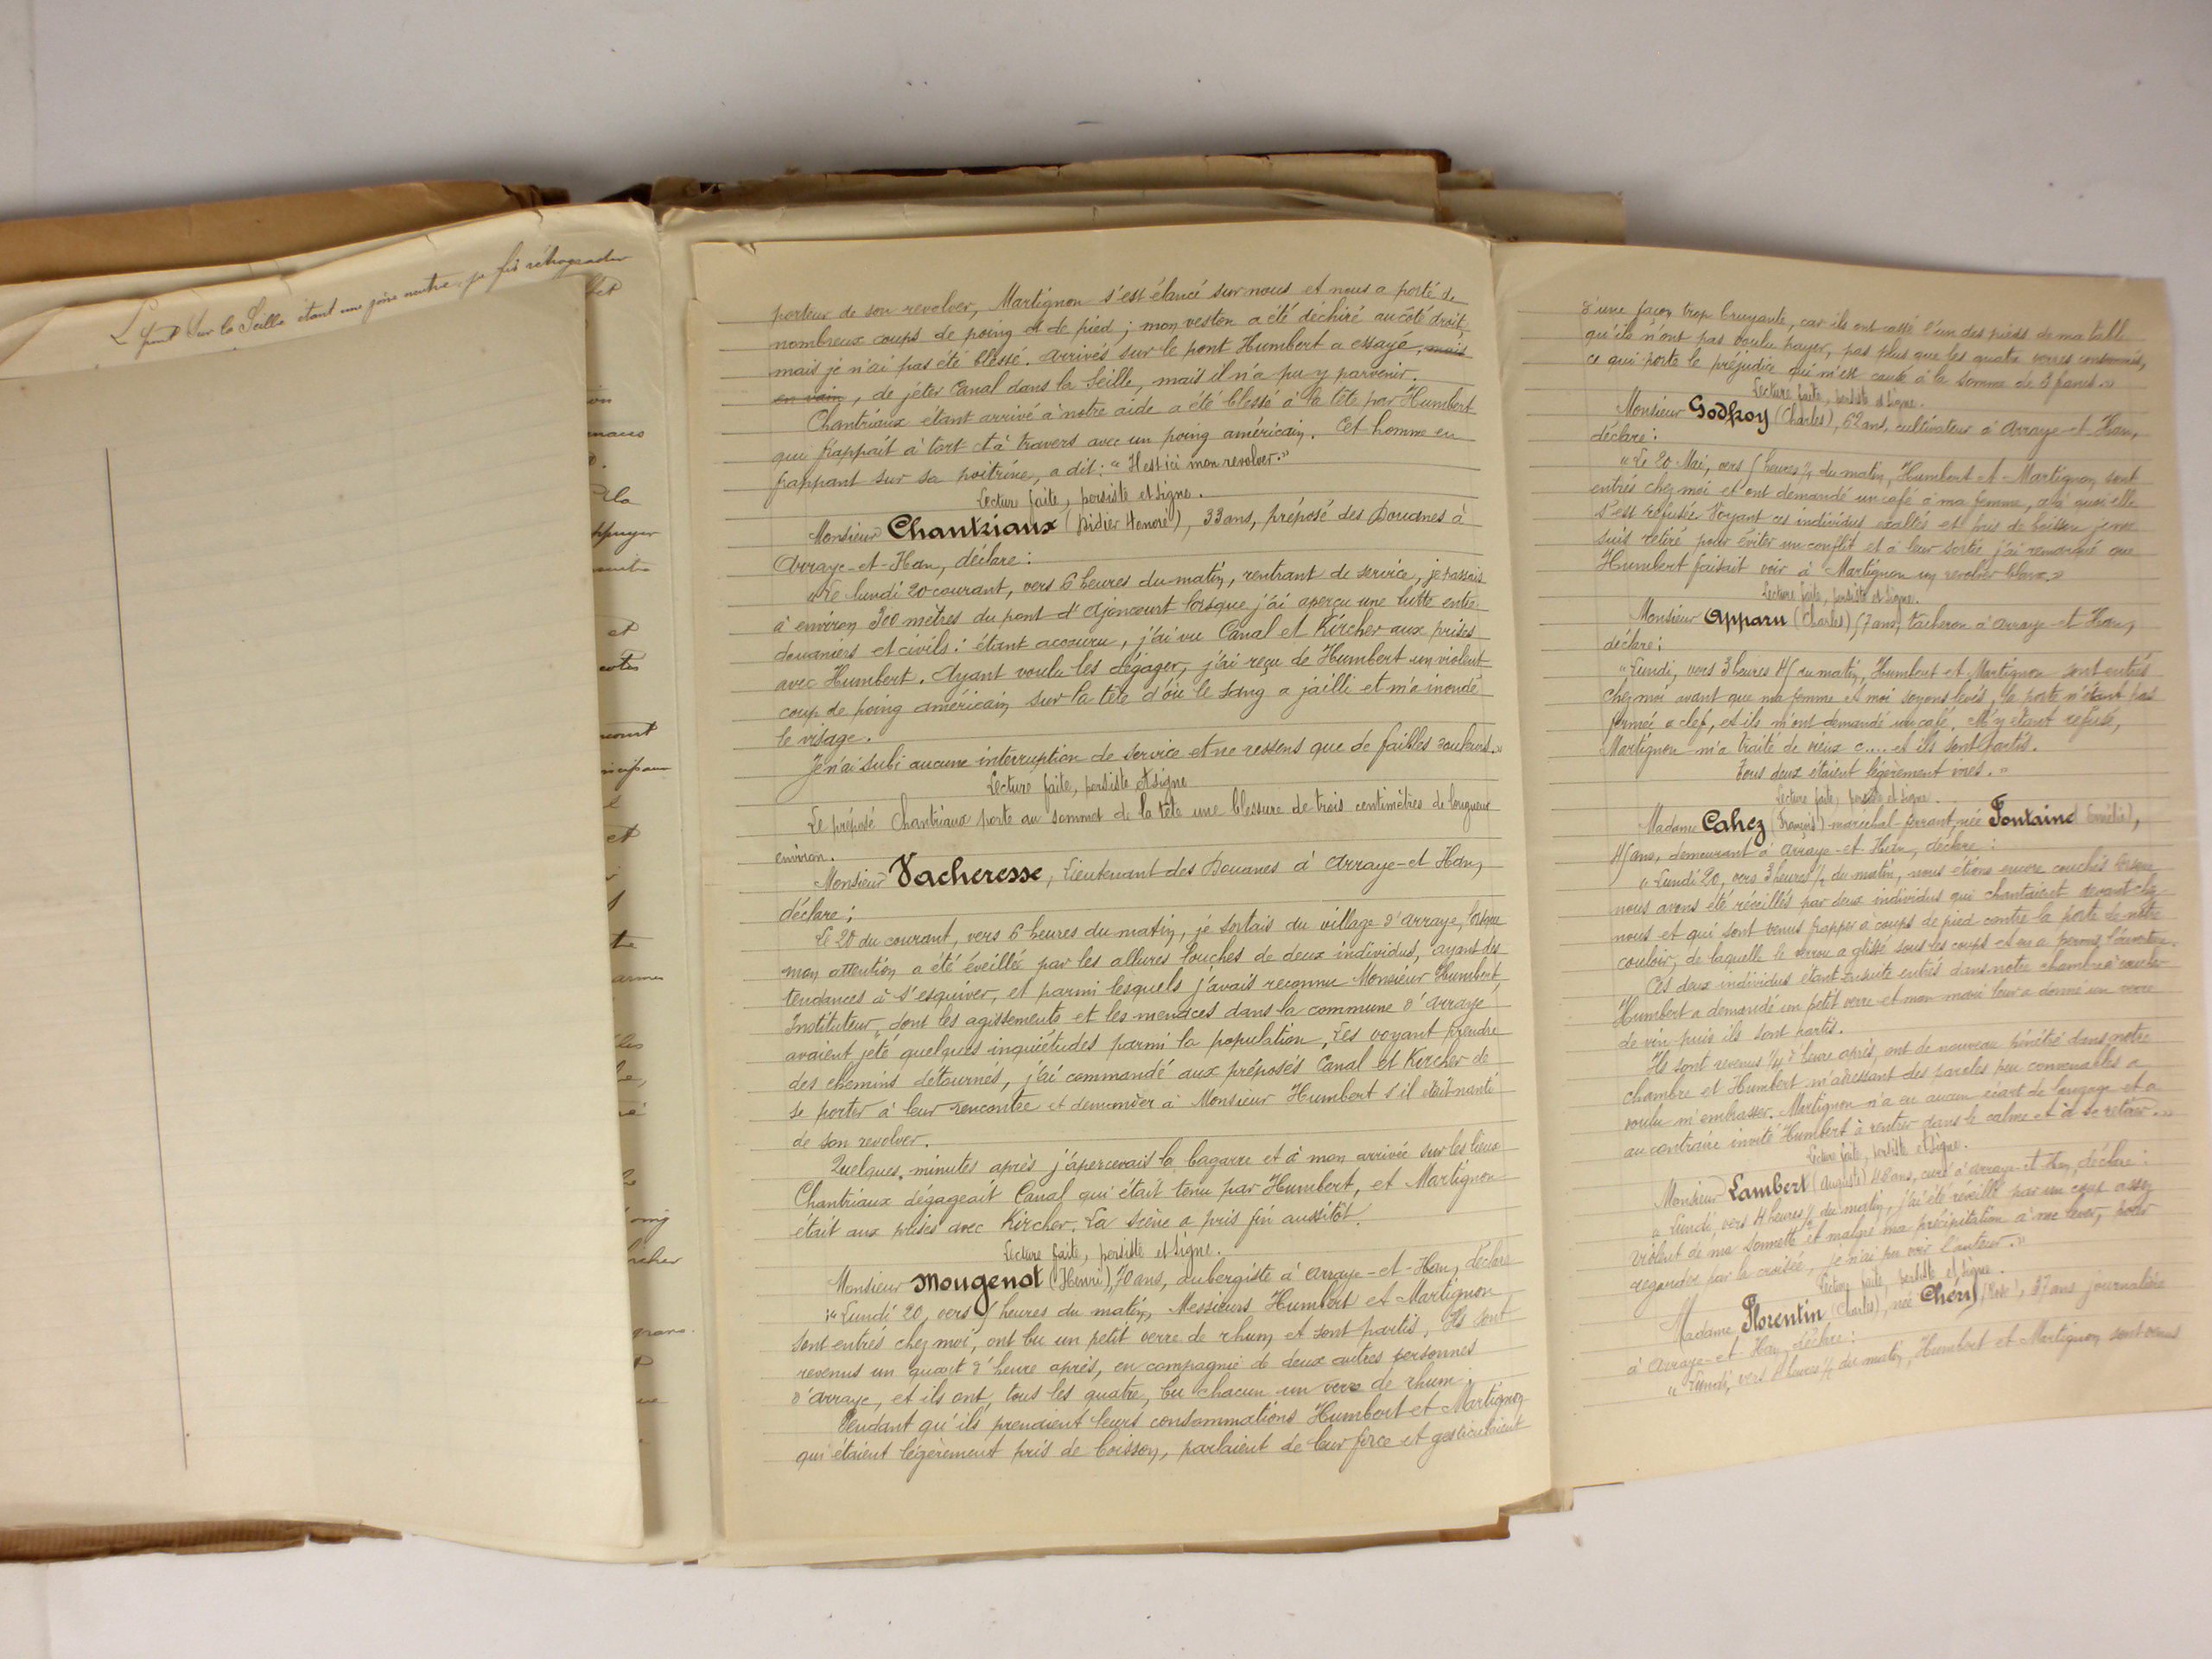 Le pont sur la Seille étant une zône neutre je fis rétrograder
et
maco
la
appuyer
suite
et
côtés
court
et
armes
Kircher
porteur de son revolver, Martignon s'est élancé sur nous et nous a porté de
nombreux coups de poing et de pied ; mon veston a été déchiré au côté droit,
mais je n'ai pas été blessé. Arrivés sur le pont Humbert a essayé, mais
en vain, de jeter Canal dans la Seille, mais il n'a pu y parvenir.
Chantriaux étant arrivé à notre aide a été blessé à la tête par Humbert
qui frappait à tort et à travers avec un poing américain. Cet homme en
frappant sur sa poitrine, a dit : "Il est ici mon revolver."
Lecture faite, persiste et signe.
Monsieur Chantriaux (Didier Honoré), 33 ans, préposé des Douanes à
Arraye-et-Han, déclare :
"Le lundi 20 courant, vers 6 heures du matin, rentrant de service, je passais
à environ 300 mètres du pont d'Ajoncourt lorsque j'ai aperçu une lutte entre
douaniers et civils : étant accouru, j'ai vu Canal et Kircher aux prises
avec Humbert. Ayant voulu les dégager, j'ai reçu de Humbert un violent
coup de poing américain sur la tête d'où le sang a jailli et m'a inondé
le visage.
Je n'ai subi aucune interruption de service et ne ressens que de faibles douleurs."
Lecture faite, persiste et signe
Le préposé Chantriaux porte au sommet de la tête une blessure de trois centimètres de longueur
environ.
Monsieur Vacheresse, Lieutenant des Douanes à Arraye-et Han,
déclare ;
Le 20 du courant, vers 6 heures du matin, je sortais du village d'Arraye, lorsque
mon attention a été éveillée par les allures louches de deux individus, ayant des
tendances à s'esquiver, et parmi lesquels j'avais reconnu Monsieur Humbert,
Instituteur, dont les agissements et les menaces dans la commune d'Arraye
avaient jeté quelques inquiétudes parmi la population, Les voyant prendre
des chemins détournés, j'ai commandé aux préposés Canal et Kircher de
se porter à leur rencontre et demander à Monsieur Humbert s'il était nanti
de son revolver.
Quelques minutes après j'apercevais la bagarre et à mon arrivée sur les lieux
Chantriaux dégageait Canal qui était tenu par Humbert, et Martignon
était aux prises avec Kircher. La scène a pris fin aussitôt.
Lecture faite, persiste et signe.
Monsieur Mougenot (Henri), 70 ans, aubergiste à Arraye-et-Han, déclare
:" Lundi 20, vers 5 heures du matin, Messieurs Humbert et Martignon
sont entrés chez moi, ont bu un petit verre de rhum et sont partis, Ils sont
revenus un quart d'heure après, en compagnie de deux autres personnes
d'Arraye, et ils ont, tous les quatre, bu chacun un verre de rhum ;
Pendant qu'ils prenaient leurs consommations Humbert et Martignon
qui étaient légèrement pris de boisson, parlaient de leur force et gesticulaient
d'une façon trop bruyante, car ils ont cassé l'un des pieds de ma table
qu'ils n'ont pas voulu payer, pas plus que les quatre verres consommés,
ce qui porte le préjudice qui m'est causé à la somme de 3 francs."
Lecture faite, persiste et signe.
Monsieur Godfroy (Charles), 62 ans, cultivateur à Arraye-et-Han,
déclare :
"Le 20 Mai, vers 5 heures ½ du matin, Humbert et Martignon sont
entrés chez moi et ont demandé un café à ma femme, à quoi elle
s'est refusée. Voyant ces individus exaltés et pris de boisson je me
suis retiré pour éviter un conflit et à leur sortie j'ai remarqué que
Humbert faisait voir à Martignon un revolver blanc."
Lecture faite, persiste et signe.
Monsieur Apparu (Charles) 57 ans, tâcheron à Arraye-et Han,
déclare :
"Lundi, vers 3 heures 45 du matin, Humbert et Martignon sont entrés
chez moi avant que ma femme et moi soyons levés, la porte n'étant pas
fermée à clef, et ils m'ont demandé un café, M'y étant refusé,
Martignon m'a traité de vieux c.... et ils sont partis.
Tous deux étaient légèrement ivres."
Lecture faite, persiste et signe.
Madame Cahez (François) maréchal-ferrant, née Fontaine (Emélie),
45 ans, demeurant à Arraye-et-Han, déclare :
"Lundi 20, vers 3 heures ½ du matin, nous étions encore couchés lorsque
nous avons été réveillés par deux individus qui chantaient devant chez
nous et qui sont venus frapper à coups de pied contre la porte de notre
couloir, de laquelle le verrou a glissé sous les coups et en a permis l'ouverture.
Ces deux individus étant ensuite entrés dans notre chambre à coucher
Humbert a demandé un petit verre et mon mari leur a donné un verre
de vin puis ils sont partis.
Ils sont revenus ¼ d'heure après, ont de nouveau pénétré dans notre
chambre et Humbert m'adressant des paroles peu convenables a
voulu m'embrasser. Martignon n'a eu aucun écart de langage et a
au contraire invité Humbert à rentrer dans le calme et à se retirer."
Lecture faite, persiste et signe.
Monsieur Lambert (Auguste) 48 ans, curé à Arraye-et Han, déclare :
"Lundi, vers 4 heures ½ du matin, j'ai été réveillé par un coup assez
violent de ma sonnette et malgré ma précipitation à me lever, pour
regarder par la croisée, je n'ai pu voir l'auteur."
Lecture faite, persiste et signe.
Madame Florentin (Charles), née Chéry, 37 ans journalière
à Arraye-et-Han, déclare :
"Lundi, vers heures ½ du matin, Humbert et Martignon sont venus